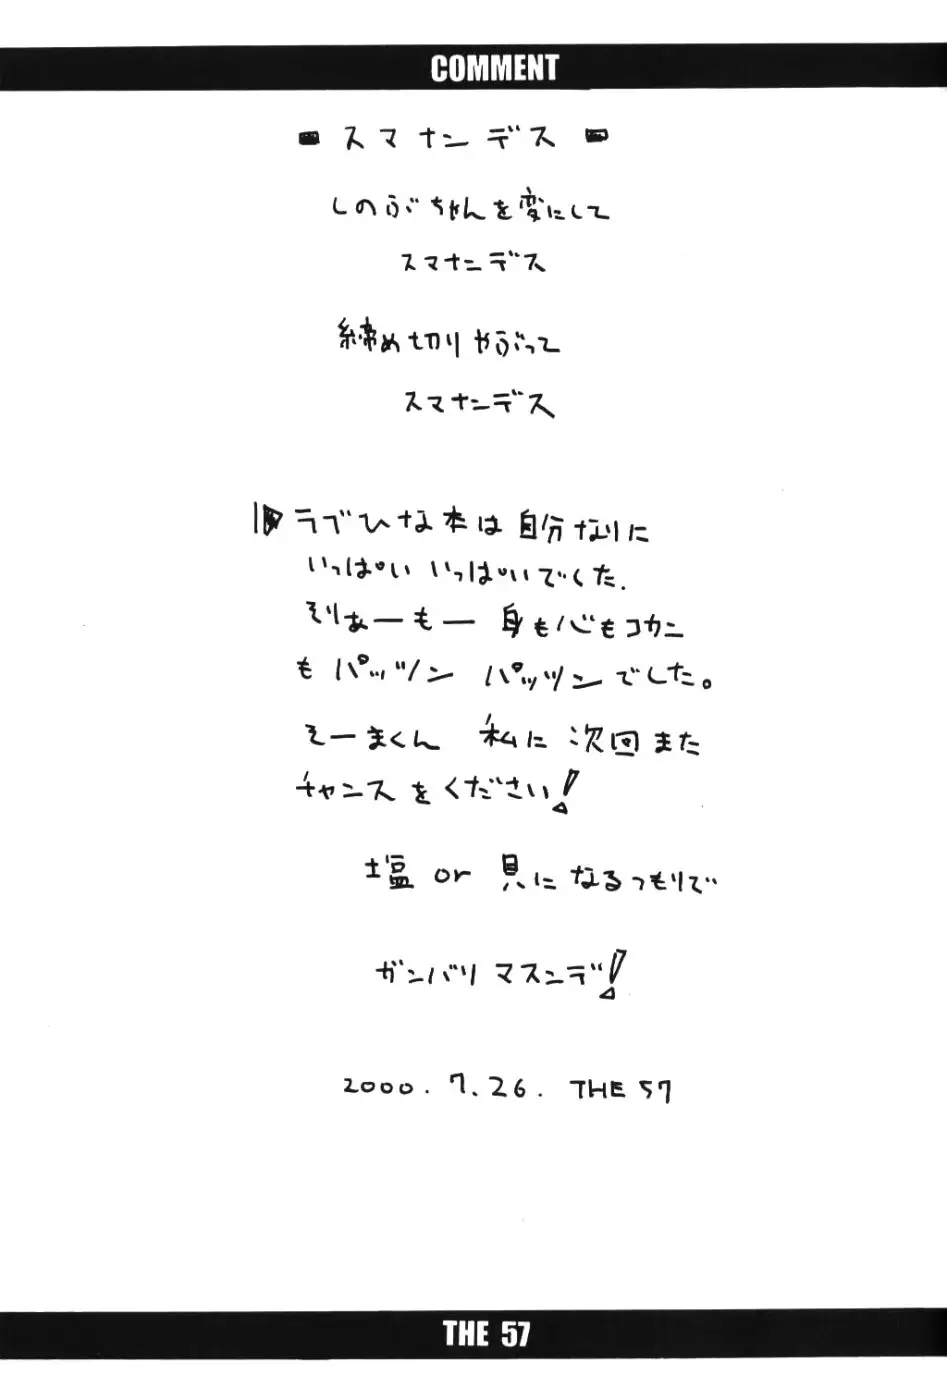 COMMENT
スマナンデス
しのぶちゃんを変にして
スマナンデス
締め切りやぶって
スマナンデス
ラブひな本は自分なりに
いっぱいいっぱいでした.
そりぁーもー 身も心もコカン
もパッツン パッツンでした。
そーまくん 私に次回また
チャンスをください!
塩 or 貝になるつもりで
ガンバリマスンデ!
2000.7.26. THE 57
THE 57